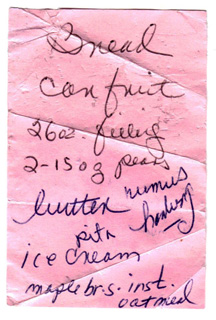 Bread
can fruit
26oz. filling
2-15oz pears
butter humus
pita
ice cream
maple br.s. inst.
oatmeal